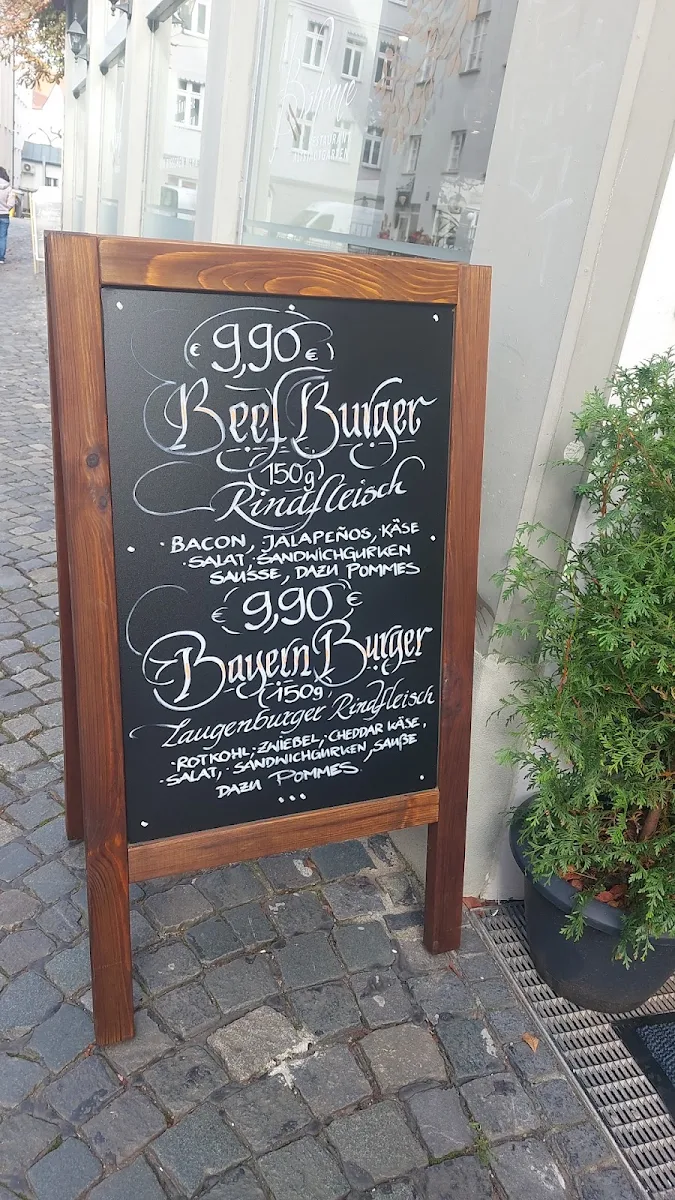 € 9,90 €
Beef Burger
(150g)
Rindfleisch
· BACON, JALAPEÑOS, KÄSE
· SALAT, · SANDWICHGURKEN
SAUSSE, DAZU POMMES
€ 9,90 €
Bayern Burger
(150g)
Laugenburger Rindfleisch
· ROTKOHL · ZWIEBEL, · CHEDDAR KÄSE,
· SALAT, · SANDWICHGURKEN, SAUßE
DAZU POMMES.
...